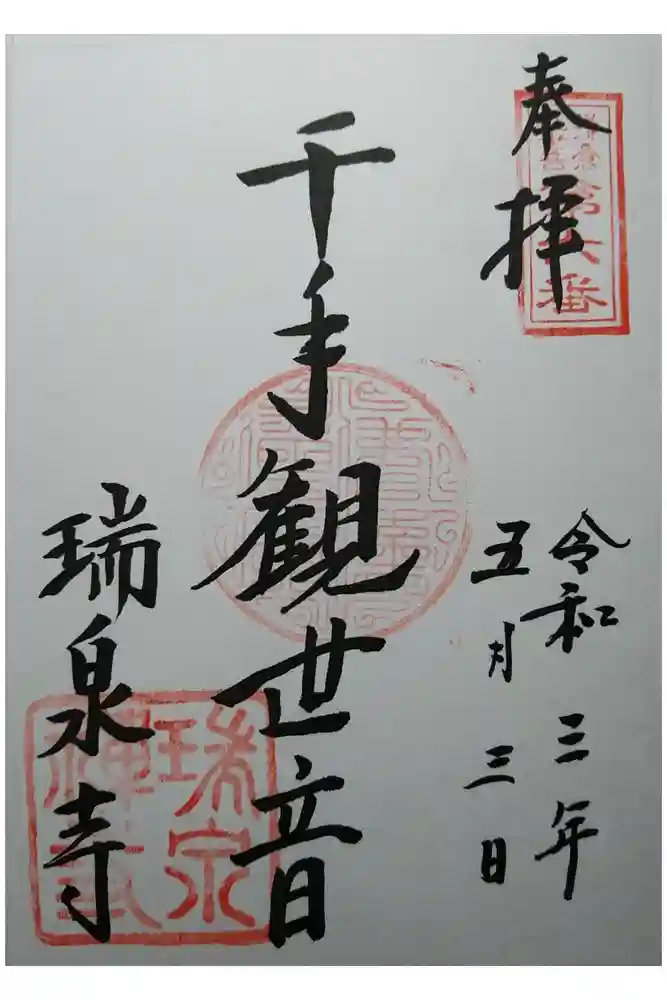 奉拝
第六番
令和三年
五月三日
千手観世音
瑞泉寺
瑞泉